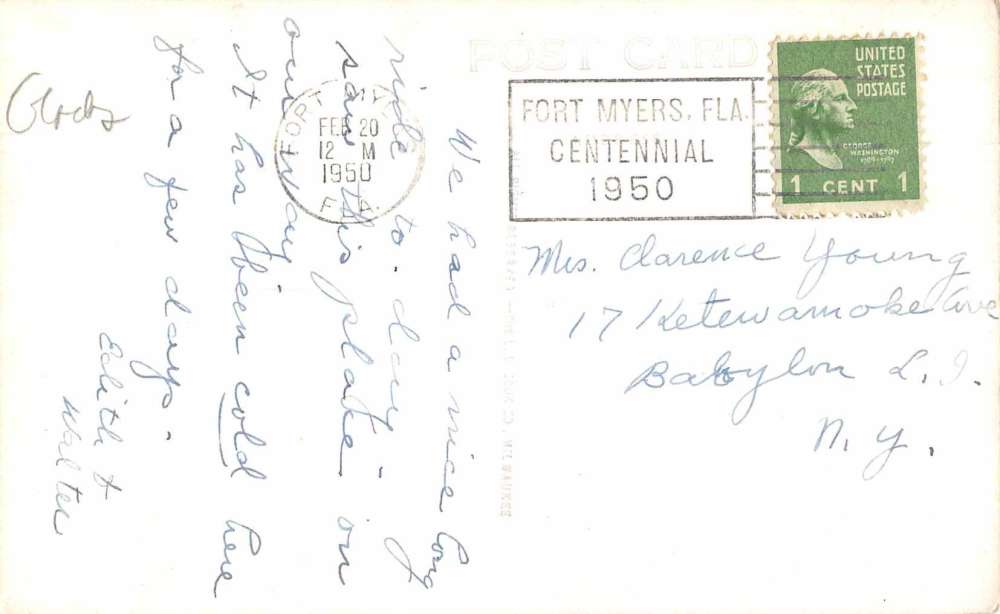 POST CARD
We had a nice long
ride to-day
saw this plake on
our way
It has been cold here
for a few days.
Edith &
Walter
FORT
FEB 20
12 M
1950
FLA.
FORT MYERS, FLA.
CENTENNIAL
1950
UNITED
STATES
POSTAGE
GEORGE
WASHINGTON
1789-1797
1 CENT 1
Mrs. Clarence Young
17 Ketewamoke Ave
Babylon L.I.
N.Y.